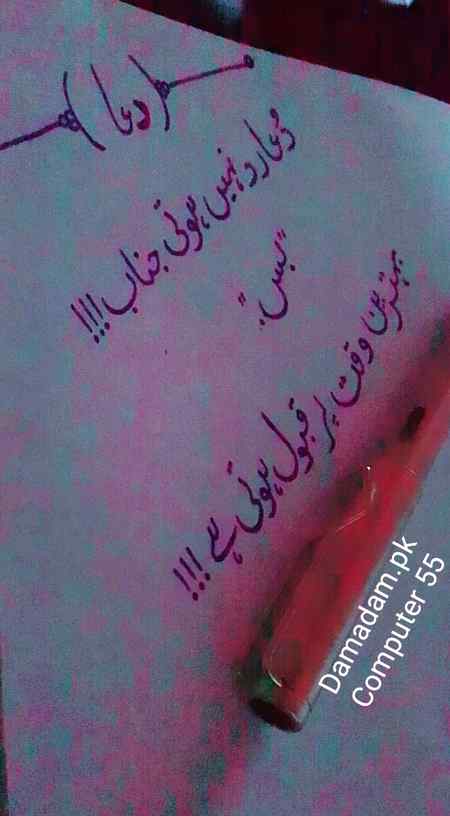 (دعا)
دعا رد نہیں ہوتی جناب!!!
"بس"
بہترین وقت پر قبول ہوتی ہے!!!
Damadam.pk
Computer 55